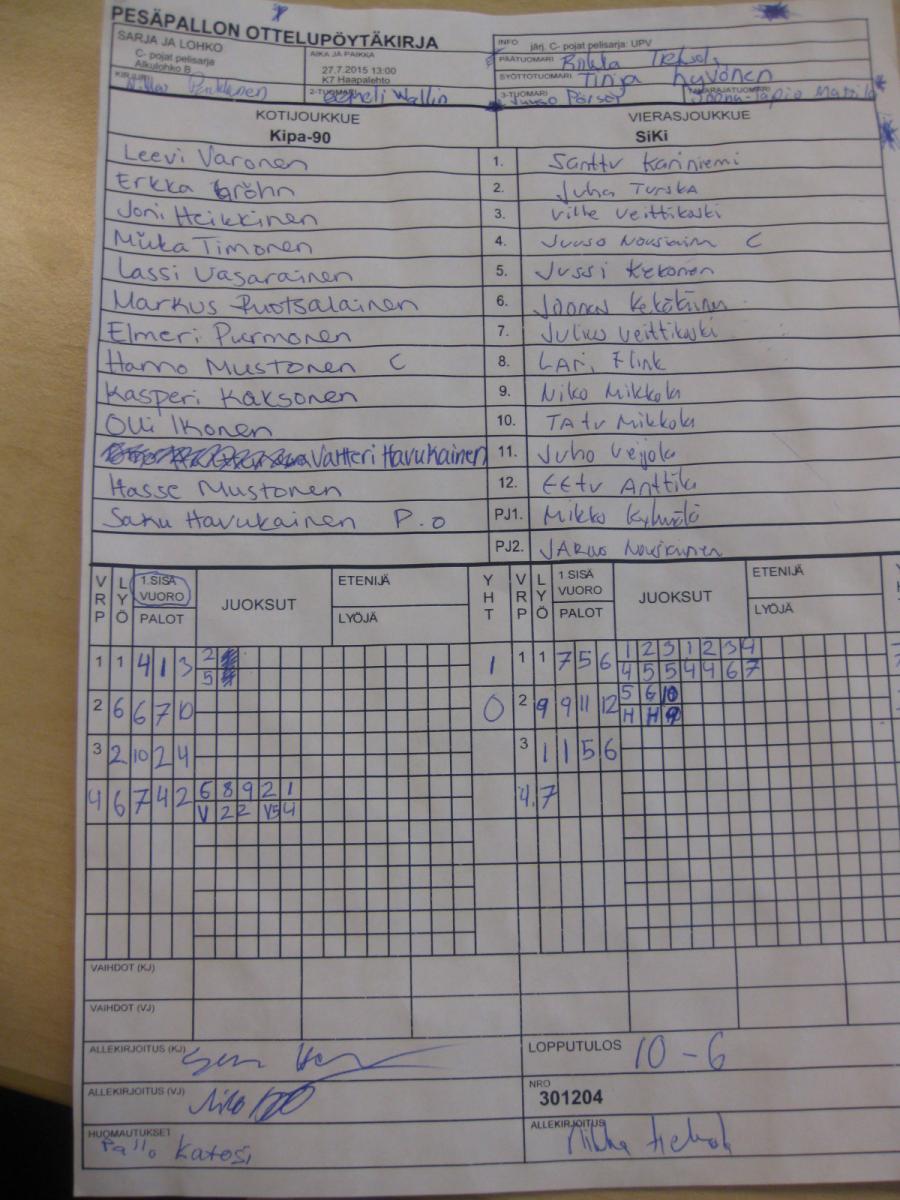 PESÄPALLON OTTELUPÖYTÄKIRJA
SARJA JA LOHKO
C- pojat pelisarja
Alkulohko B
AIKA JA PAIKKA
27.7.2015 13:00
K7 Haapalehto
INFO järj. C- pojat pelisarja: UPV
PÄÄTUOMARI
SYÖTTÖTUOMARI Tinja Hyvönen
KIRJURI
2-TUOMARI Eemeli Wallin
3-TUOMARI Juuso
TAKARAJATUOMARI Joona-Tapio Mattila
KOTIJOUKKUE VIERASJOUKKUE
Kipa-90 SiKi
Leevi Varonen 1. Santtu Kariniemi
Erkka Gröhn 2. Juha Turska
Joni Heikkinen 3. Ville Veittikoski
Miika Timonen 4. Juuso C
Lassi Vasarainen 5. Jussi Kekonen
Markus Ruotsalainen 6. Joonas
Elmeri Purmonen 7. Julius Veittikoski
Hanno Mustonen C 8. LAri Flink
Kasperi Kaksonen 9. Niko Mikkola
Olli Ikonen 10. TAtu Mikkola
Valtteri Havukainen 11. Juho Veijola
Hasse Mustonen 12. EEtu Anttila
Saku Havukainen P.O PJ1. Mikko
PJ2. JAkus
VRP LYÖ 1.SISÄ VUORO PALOT JUOKSUT ETENIJÄ LYÖJÄ YHT VRP LYÖ 1.SISÄ VUORO PALOT JUOKSUT ETENIJÄ LYÖJÄ
1 1 4 1 3 2 1 1 1 7 5 6 1 2 3 1 2 3 4
5 4 5 5 4 4 6 7
2 6 6 7 10 0 2 9 9 11 12 5 6 10
H H 9
3 2 10 2 4 3 1 1 5 6
4 6 7 4 2 6 8 9 2 1 4. 7
V 2 2 V 5 4
VAIHDOT (KJ)
VAIHDOT (VJ)
ALLEKIRJOITUS (KJ) LOPPUTULOS 10-6
ALLEKIRJOITUS (VJ) NRO
301204
HUOMAUTUKSET ALLEKIRJOITUS
Pallo Katosi